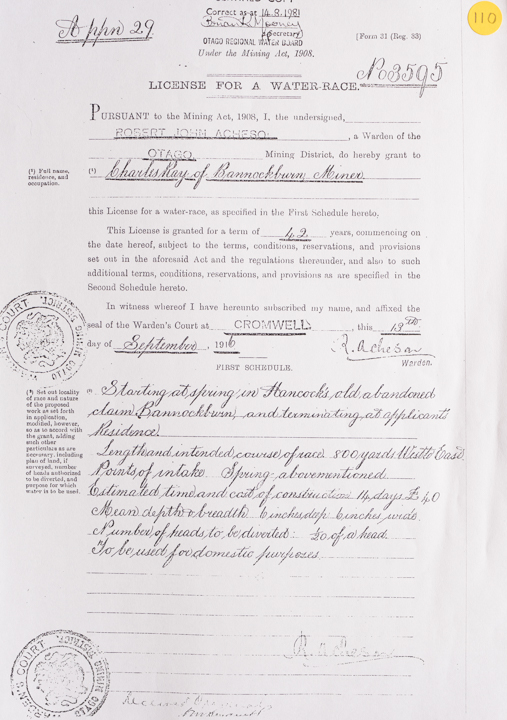 CERTIFIED COPY
Correct as at 14.8.1981
Brian L Mooney
(Secretary)
OTAGO REGIONAL WATER BOARD
110
Appn 29
[Form 31 (Reg. 83)
Under the Mining Act, 1908.
No 3595
LICENSE FOR A WATER-RACE.
PURSUANT to the Mining Act, 1908, I, the undersigned,
ROBERT JOHN ACHESO , a Warden of the
OTAGO. Mining District, do hereby grant to
(¹) Full name, residence, and occupation.
(¹) Charles Ray of Bannockburn, Miner
this License for a water-race, as specified in the First Schedule hereto.
This License is granted for a term of 42 years, commencing on
the date hereof, subject to the terms, conditions, reservations, and provisions
set out in the aforesaid Act and the regulations thereunder, and also to such
additional terms, conditions, reservations, and provisions as are specified in the
Second Schedule hereto.
In witness whereof I have hereunto subscribed my name, and affixed the
seal of the Warden's Court at CROMWELL , this 13th
day of September , 1916
R. Acheson
Warden.
FIRST SCHEDULE.
(²) Set out locality
of race and nature
of the proposed
work as set forth
in application,
modified, however,
so as to accord with
the grant, adding
such other
particulars as are
necessary, including
plan of land, if
surveyed, number
of heads authorized
to be diverted, and
purpose for which
water is to be used.
Starting at spring in Hancock's old abandoned
claim Bannockburn and terminating at applicants
Residence
Length and intended course of race 800 yards West to East
Points of intake Spring abovementioned
Estimated time and cost of construction 14 days £40
Mean depth & breadth 6 inches deep 6 inches wide
Number of heads to be diverted: of a head
To be used for domestic purposes
R. Acheson
WARDEN'S COURT
OTAGO MINING DISTRICT